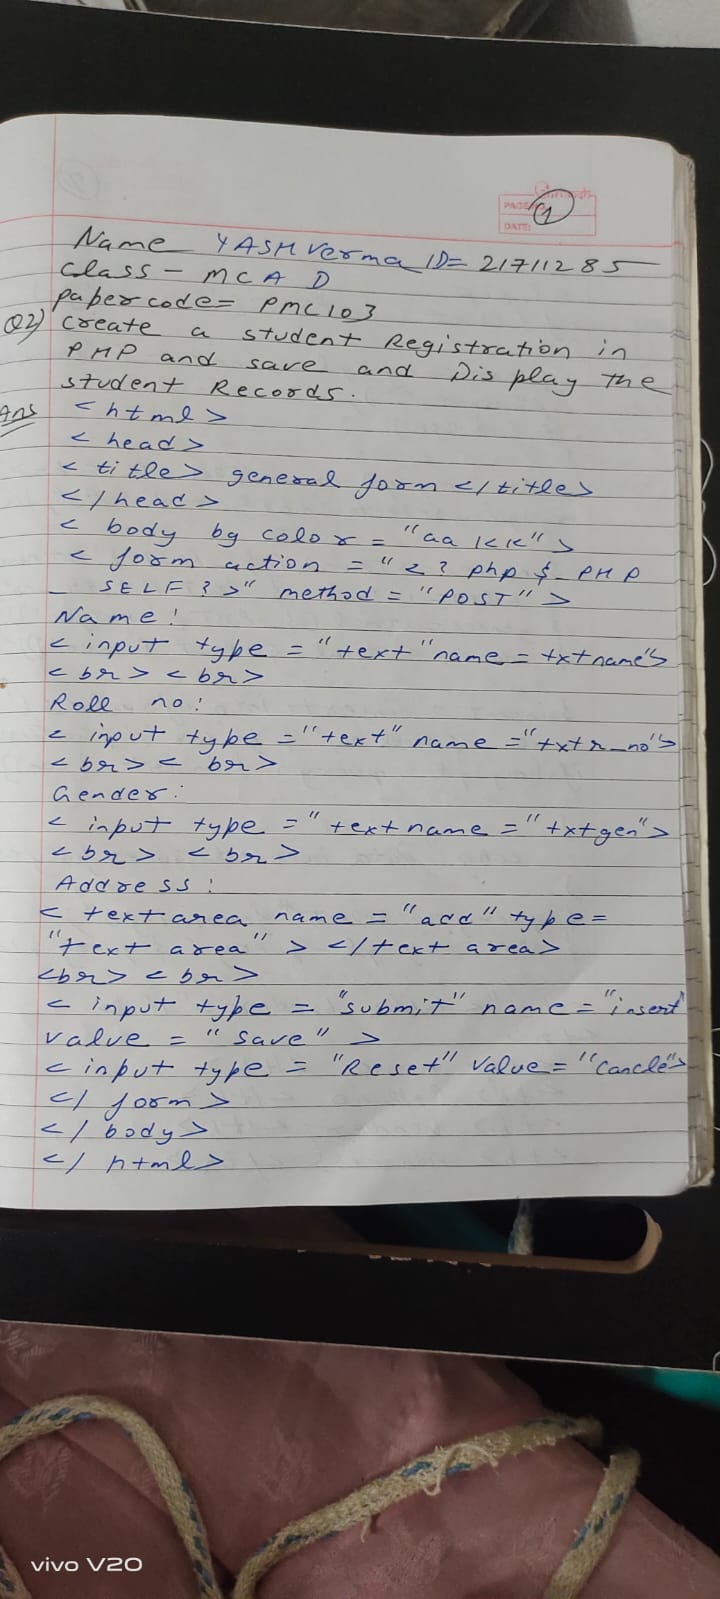 PAGE NO.
1
DATE:
Name YASH Verma ID= 21711285
class - MCA D
paper code= PMC103
Q2) create a student Registration in
PHP and save and Display the
student Records.
Ans <html>
<head>
<title> general form </title>
</head>
< body bg color = "aa kk" >
< form action = "<? php $_PHP
_ SELF ?>" method = "POST">
Name:
< input type = "text" name = txtname">
<br> <br>
Roll no:
< input type = "text" name = "txtr_no">
<br> < br>
Gender:
< input type = " text name = "txtgen">
<br> <br>
Address:
< text area name = "add" type=
"text area" > </text area>
<br> < br>
< input type = "submit" name = "insert
value = " save" >
< input type = "Reset" value = "Cancle">
</ form >
</ body>
</ html>
vivo V20